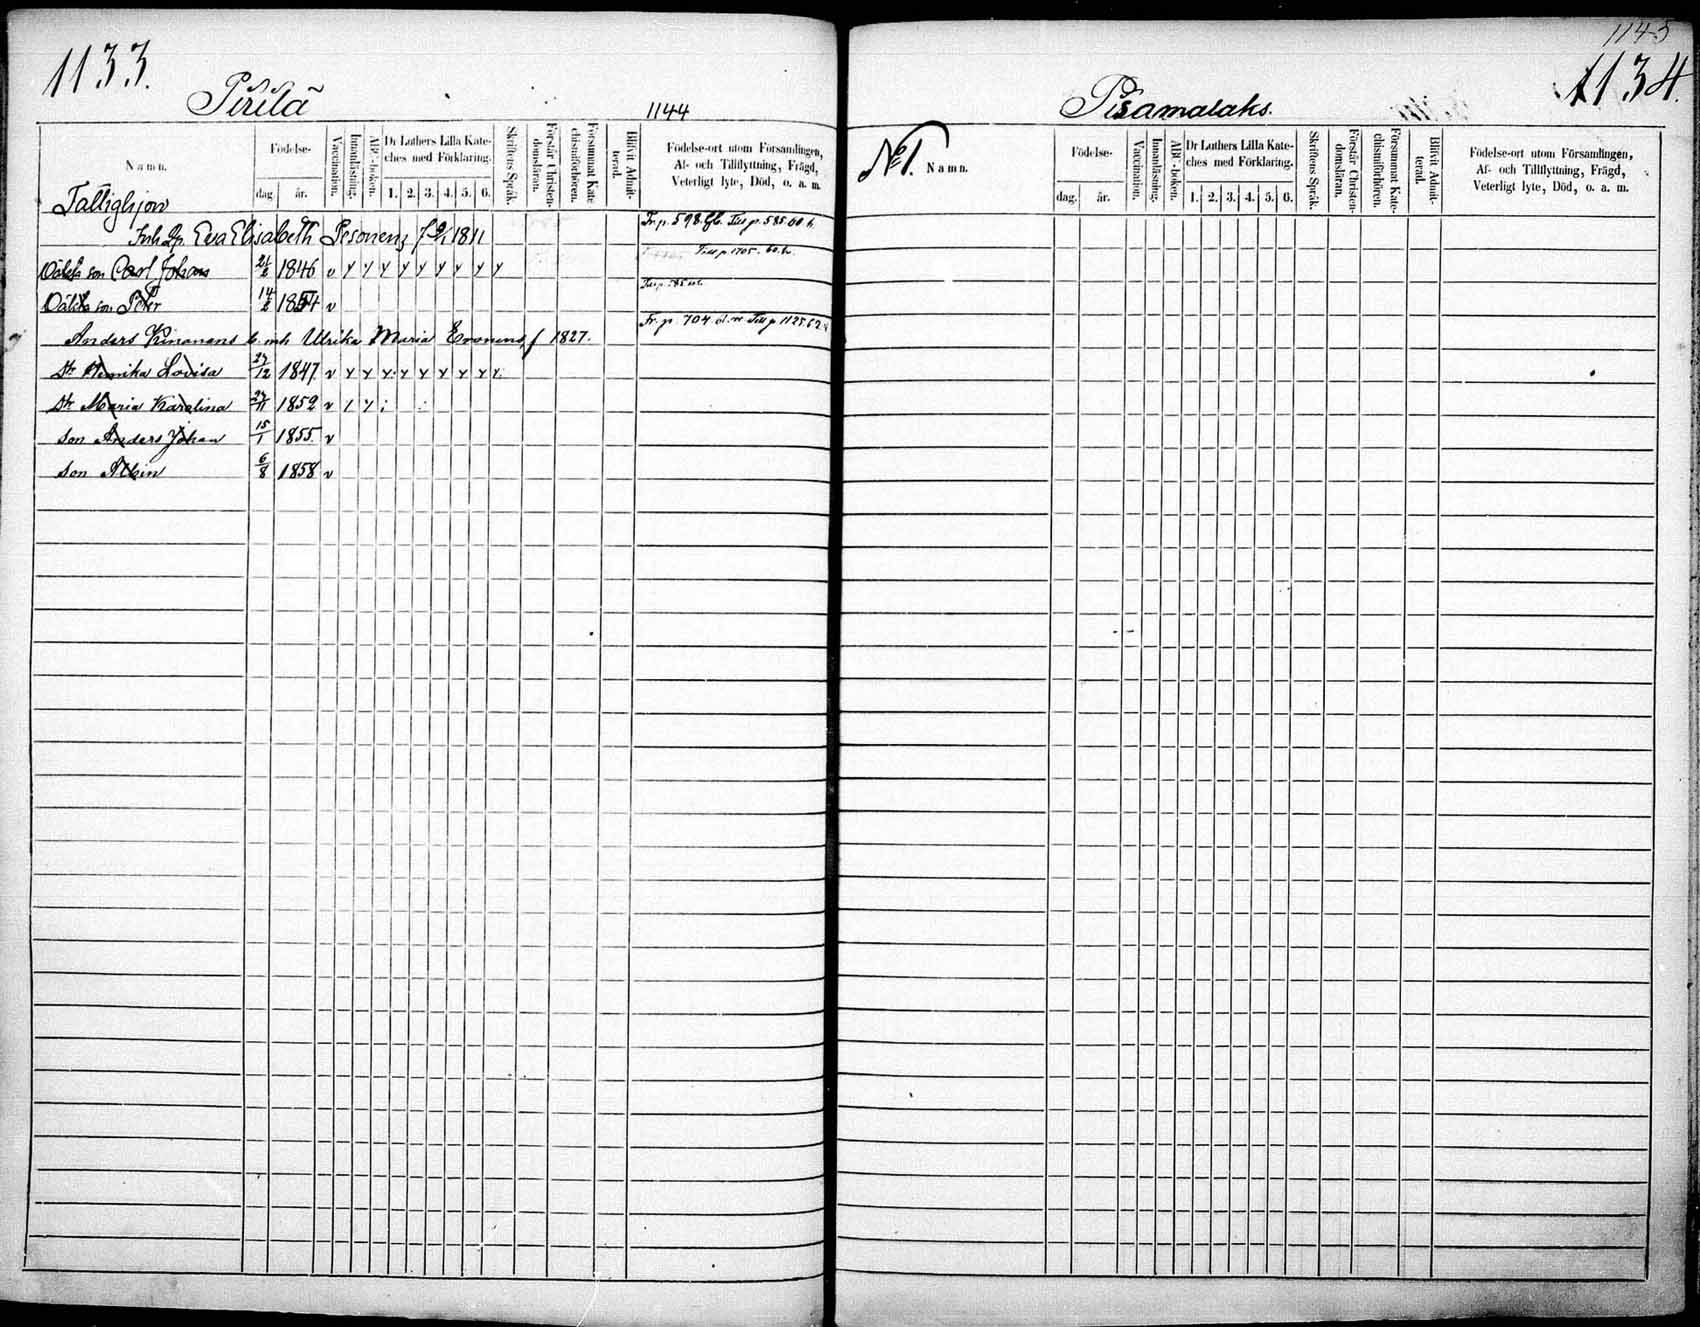 1133.
Pirilä
1144
Namn.
Födelse-
dag
år.
Vaccination.
Innanläsning.
ABC-boken.
Dr Luthers Lilla Kate-
ches med Förklaring.
1. 2. 3. 4. 5. 6.
Skriftens Språk.
Förstår Christen-
domsläran.
Försummat Kate
chismiförhören.
Blifvit Admit-
terad.
Födelse-ort utom Församlingen,
Af- och Tillflyttning, Frägd,
Veterligt lyte, Död, o. a. m.
Fattighjon
Inh. Eva Elisabeth Pesonen f 1811 Fr. p. 598. Till p. 585. 60
Oäkta son Carl Johan 21/2 1846 v y y y y y y y y y Till p. 1705. 60
Oäkta son Peter 14/2 1854 v
Anders Kinonens Ulrika Maria f 1827. Fr. p. 704 Till p 1125. 62
Dr Lovisa 27/12 1847. v y y y y y y y y y
Dr Maria Karolina 27/11 1852 v / y
son Anders Johan 15/1 1855. v
son Albin 6/8 1858 v
1145
1134.
Pisamalaks.
No 1.
Namn.
Födelse-
dag.
år.
Vaccination.
Innanläsning.
ABC-boken.
Dr Luthers Lilla Kate-
ches med Förklaring.
1. 2. 3. 4. 5. 6.
Skriftens Språk.
Förstår Christen-
domsläran.
Försummat Kate-
chismiförhören.
Blifvit Admit-
terad.
Födelse-ort utom Församlingen,
Af- och Tillflyttning, Frägd,
Veterligt lyte, Död, o. a. m.